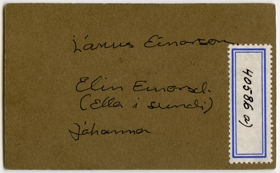 Lárus Einarsson
Elin Einarsd.
(Ella i sundi)
Jóhanna
40586 a)